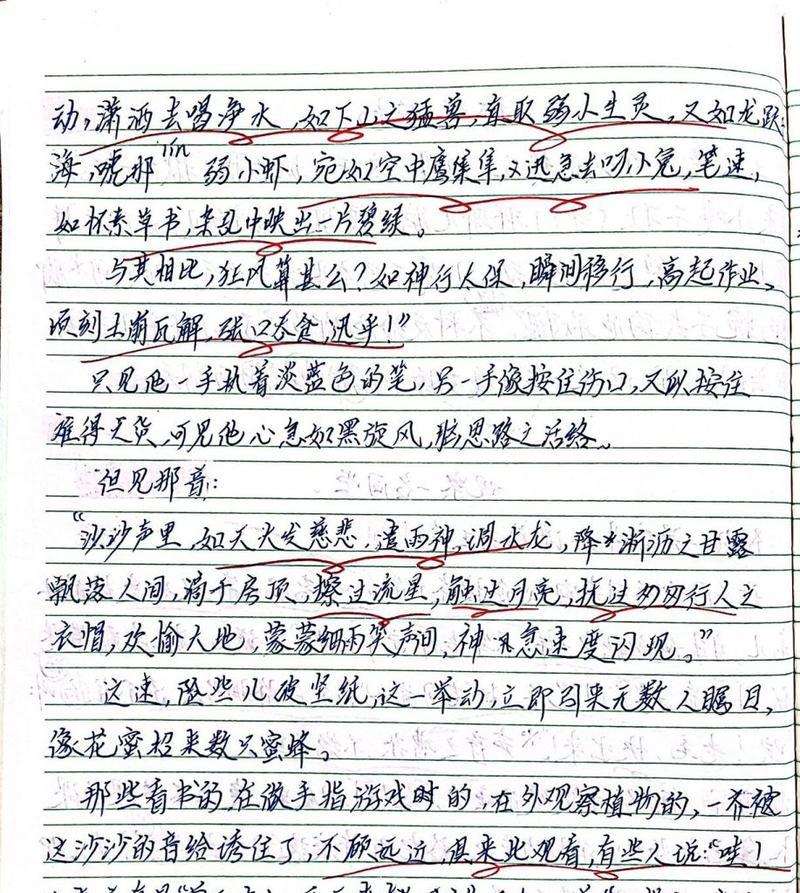 动，潇洒去喝净水，如下山之猛兽，直取弱小生灵，又如龙跃
海，唬那弱小虾，宛如空中鹰隼，又迅急去叼小兔，笔速，
如怀素草书，杂乱中映出一片碧绿。
与其相比，狂风算甚么？如神行太保，瞬间移行，高起作业、
顷刻土崩瓦解，张口吞食，迅乎！”
只见他一手执着淡蓝色的笔，另一手像按住伤口，又似按住
难得天货，可见他心急如黑旋风，脑思路之活络。
但见那音：
“沙沙声里，如天火发慈悲，遣雨神，调水龙，降淅沥之甘露
飘落人间，滴于房顶，擦过流星，触过月亮，抚过匆匆行人之
衣帽，欢愉大地，蒙蒙细雨笑声间，神汛急速度闪现。”
这速，险些儿破坚纸，这一举动，立即引来无数人瞩目，
像花蜜招来数只蜜蜂。
那些看书的，在做手指游戏时的，在外观察植物的，一齐被
这沙沙的音给诱住了，不顾远近，俱来此观看，有些人说：“哇！